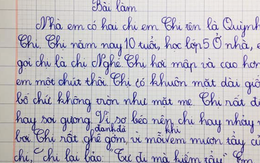 Bài làm
Nhà em có hai chị em. Chị tên là Quỳnh
Chi. Chị năm nay 10 tuổi, học lớp 5. Ở nhà, e
gọi chị là chị Nghé. Chị hơi mập và cao hơn
em một chút thôi. Chị có khuôn mặt dài giố
bố chứ không tròn như mặt mẹ. Chị rất đ
hay soi gương. Vì sợ béo nên chị hay nhảy
bơi. Chị rất ghê gớm, vì mỗi em mượn tẩy củ
đanh đá khi
chị, chị lại bảo: "Tự đi mà kiếm tẩy". Em